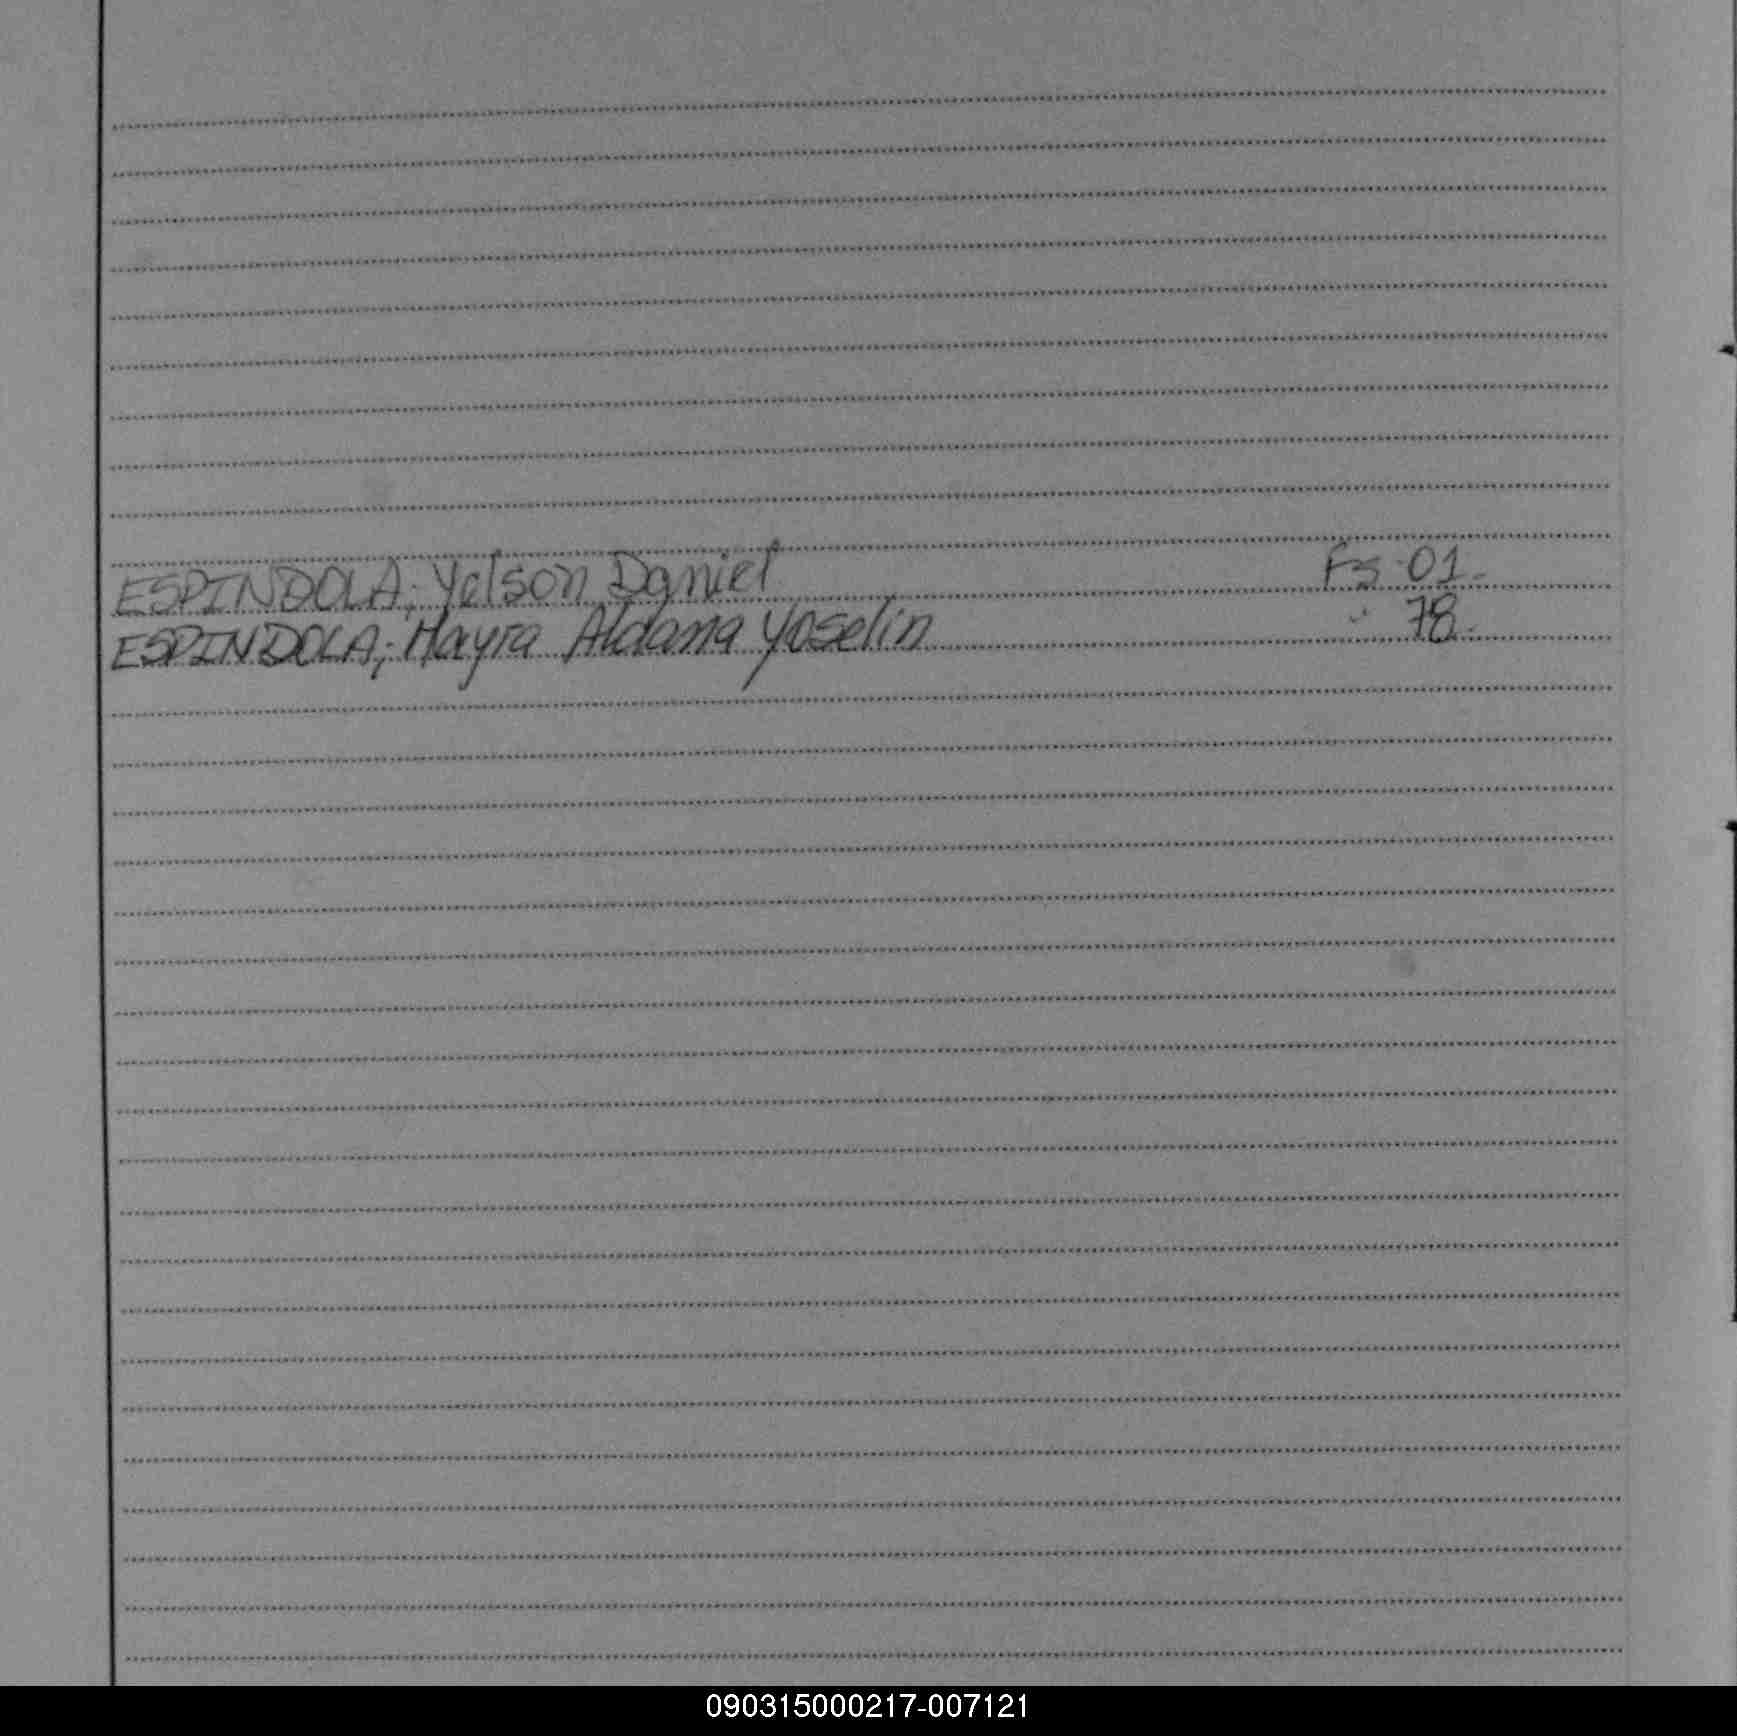 ESPINDOLA; Yelson Daniel Fs 01.-
ESPINDOLA; Mayra Aldana Yoselin " 78.-
090315000217-007121